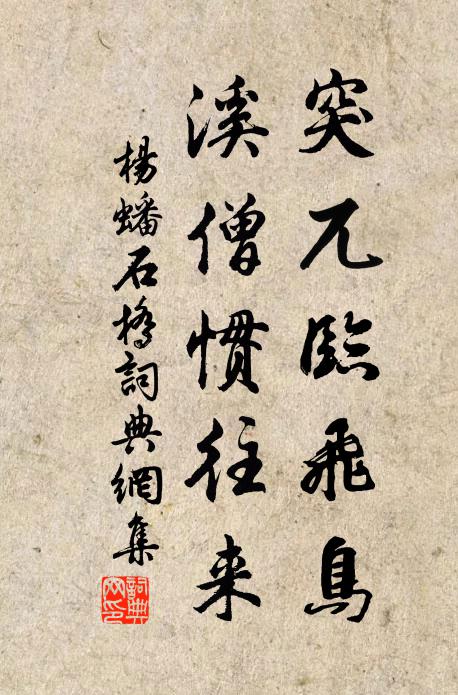 突兀臨飛鳥
溪僧慣往来
楊蟠石橋詞典網集
詞典網印